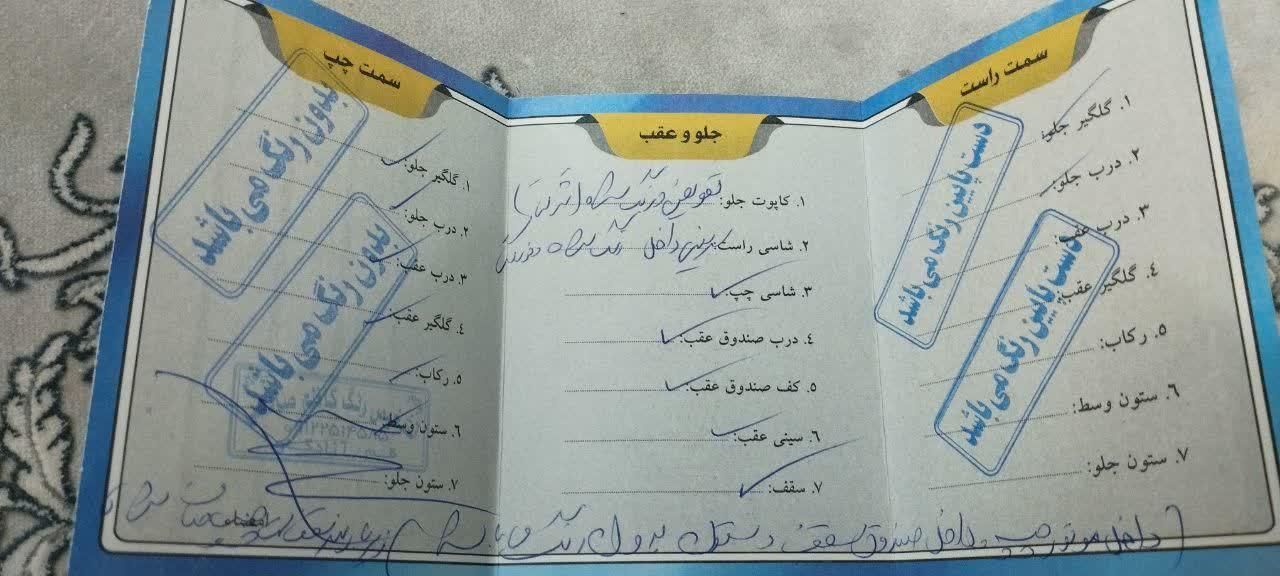 سمت راست
۱. گلگیر جلو:
۲. درب جلو:
۳. درب عقب:
۴. گلگیر عقب:
۵. رکاب:
۶. ستون وسط:
۷. ستون جلو:
دست پایین رنگ می باشد
دست پایین رنگ می باشد
جلو و عقب
۱. کاپوت جلو: تعویض و رنگ
۲. شاسی راست: داخل رنگ
۳. شاسی چپ:
۴. درب صندوق عقب:
۵. کف صندوق عقب:
۶. سینی عقب:
۷. سقف:
سمت چپ
۱. گلگیر جلو:
۲. درب جلو:
۳. درب عقب:
۴. گلگیر عقب:
۵. رکاب:
۶. ستون وسط:
۷. ستون جلو:
بدون رنگ می باشد
بدون رنگ می باشد
داخل موتور چپ و داخل صندوق سقف و ستون بدون رنگ می باشد